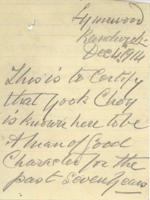 Lynwood
Dec 1914
This is to certify
that Yook Choy
is known here to be
A man of Good
Character for the
past Seven Years